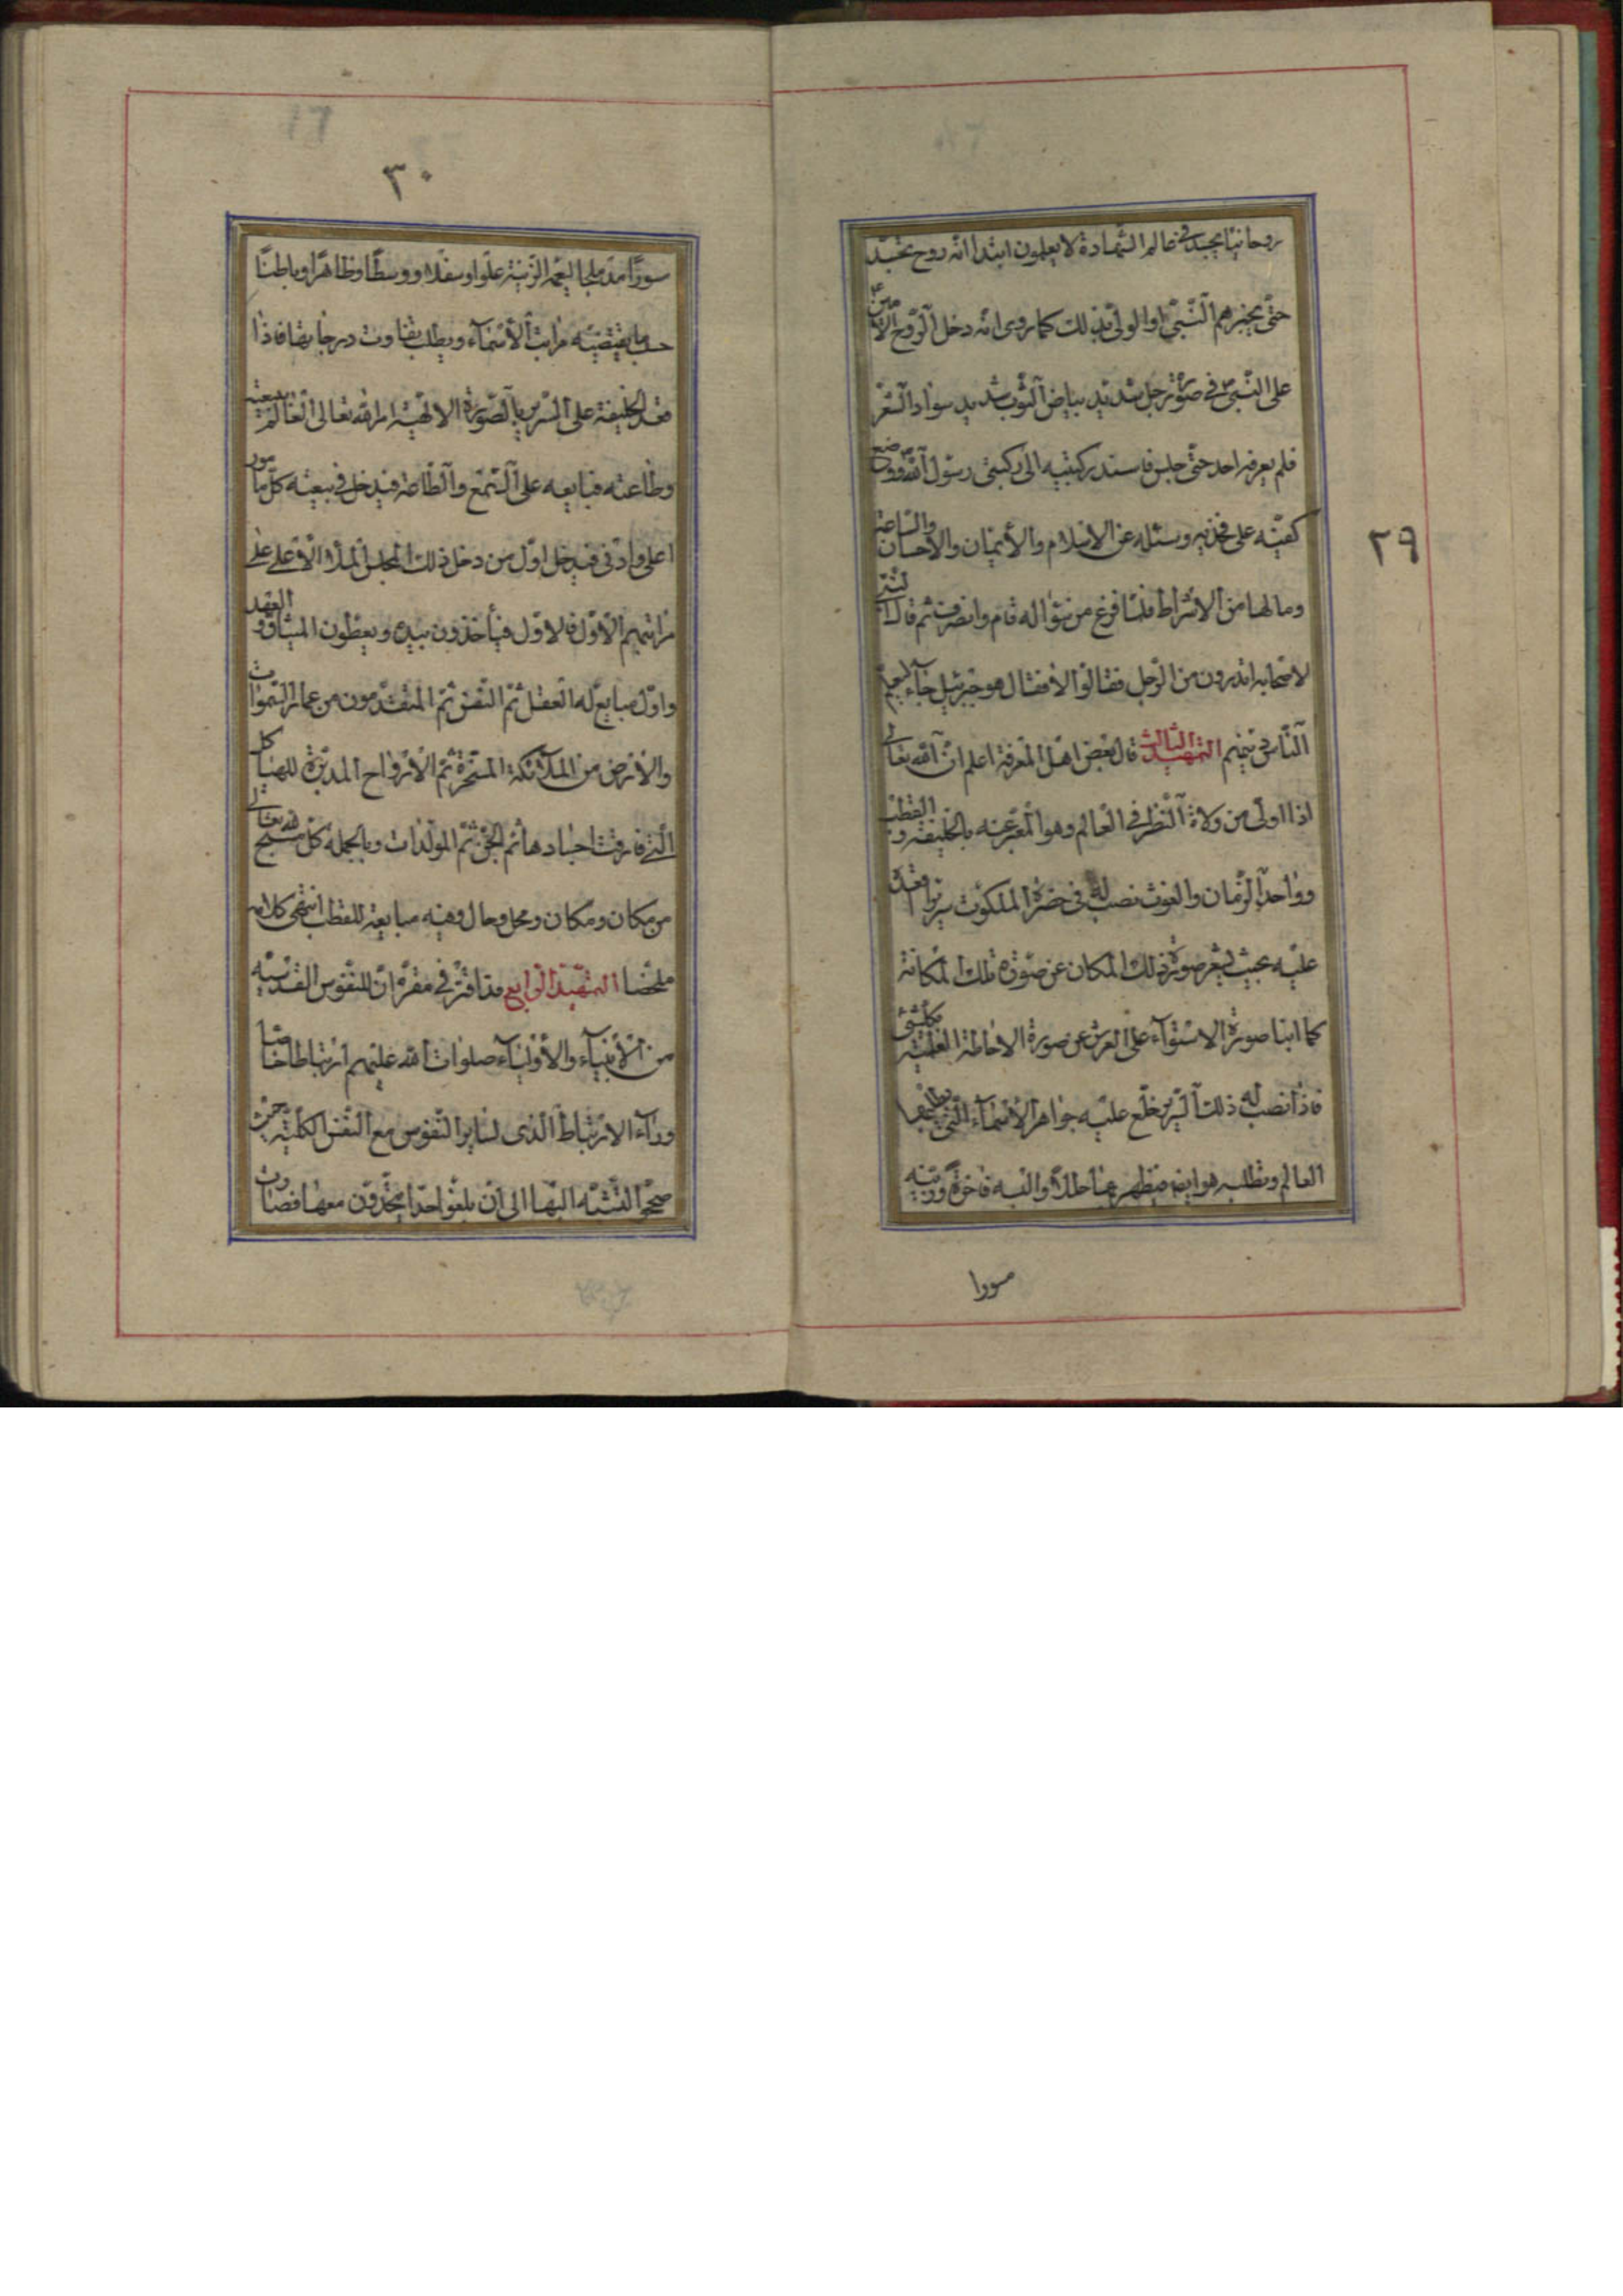 ٢٩
روحانيّا يجسد في عالم الشهادة لا يعلمون ابتدا انّه روح تجسّد
حتّى يخبرهم النّبيّ اوالولىّ بذلك كما روى انّه دخل الرّوح الأمين
على النّبيّ في صورة رجل شديد بياض الثوب شديد سواد الشعر
فلم يعرفه احد حتّى جلس فاسند ركبتيه الى ركبتى رسول اللّه ووضع
كفّيه على فخذيه وسئله عن الاسلام والأيمان والاحسان والسّاعة
ومالها من الاشراط فلمّا فرغ من سؤاله قام وانصرف ثم قال
لاصحابه اتدرون من الرّجل فقالوا لا فقال هو جبرئيل جاء ليعلم
النّاس دينهم التمهيد الثالث قال بعض اهل المعرفة اعلم انّ اللّه تعالى
اذا اولى من ولاة النّظر في العالم وهو المعبّر عنه بالخليفة والقطب
وواحد الزّمان والغوث نصب له في حضرة الملكوت سريرا اقعده
عليه بحيث ينبئ صورة ذلك المكان عن صورة تلك المكانة
كما انبا صورة الاستواء على العرش عن صورة الاحاطة العلميّة
فاذا نصب له ذلك السّرير خلع عليه جواهر الأسماء الّتى يطلبها
العالم وتطلبه هو ايضا فيظهر بها حللا والبسه فاخرة وزينه
سورا
٣٠
سورا مد ملجا ليعمّه الزّينة علوا وسفلا ووسطا وظاهرا وباطنا
حسب ما يقتضيه مراتب الأسماء ويطلب تفاوت درجاتها فاذا
قعد الخليفة على السّرير بالصّورة الالهيّة امر اللّه تعالى العالم ببيعته
وطاعته فبايعه على السّمع والطّاعة فيدخل في بيعته كلّ مامور
اعلى وادنى فيدخل اوّل من دخل ذلك المجلس الملأ الأعلى على
مراتبهم الأوّل فالاوّل فيأخذون بيده ويعطون الميثاق والعهد
واوّل مبايع له العقل ثمّ النّفس ثمّ المقدّمون من عمار السّموات
والأرض من الملائكة المسخّرة ثمّ الأرواح المدبّرة للهياكل
الّتى فارقت اجسادها ثمّ الجنّ ثمّ المولّدات وبالجملة كلّ مسبّح للّه تعالى
من مكان ومكان ومحل وحال وفيه مبايعة للقطب انتهى كلامه
ملخّصا التمهيد الرابع قد اقرّ في مقرّه انّ للنّفوس القدسيّة
من الأنبياء والأولياء صلوات اللّه عليهم ارتباطا خاصّا
وراء الارتباط الّذى لساير النّفوس مع النّفس الكلّيّة حيث
صحّحوا النّسبة اليها الى ان بلغوا حدا يتّحدون معها فصارت